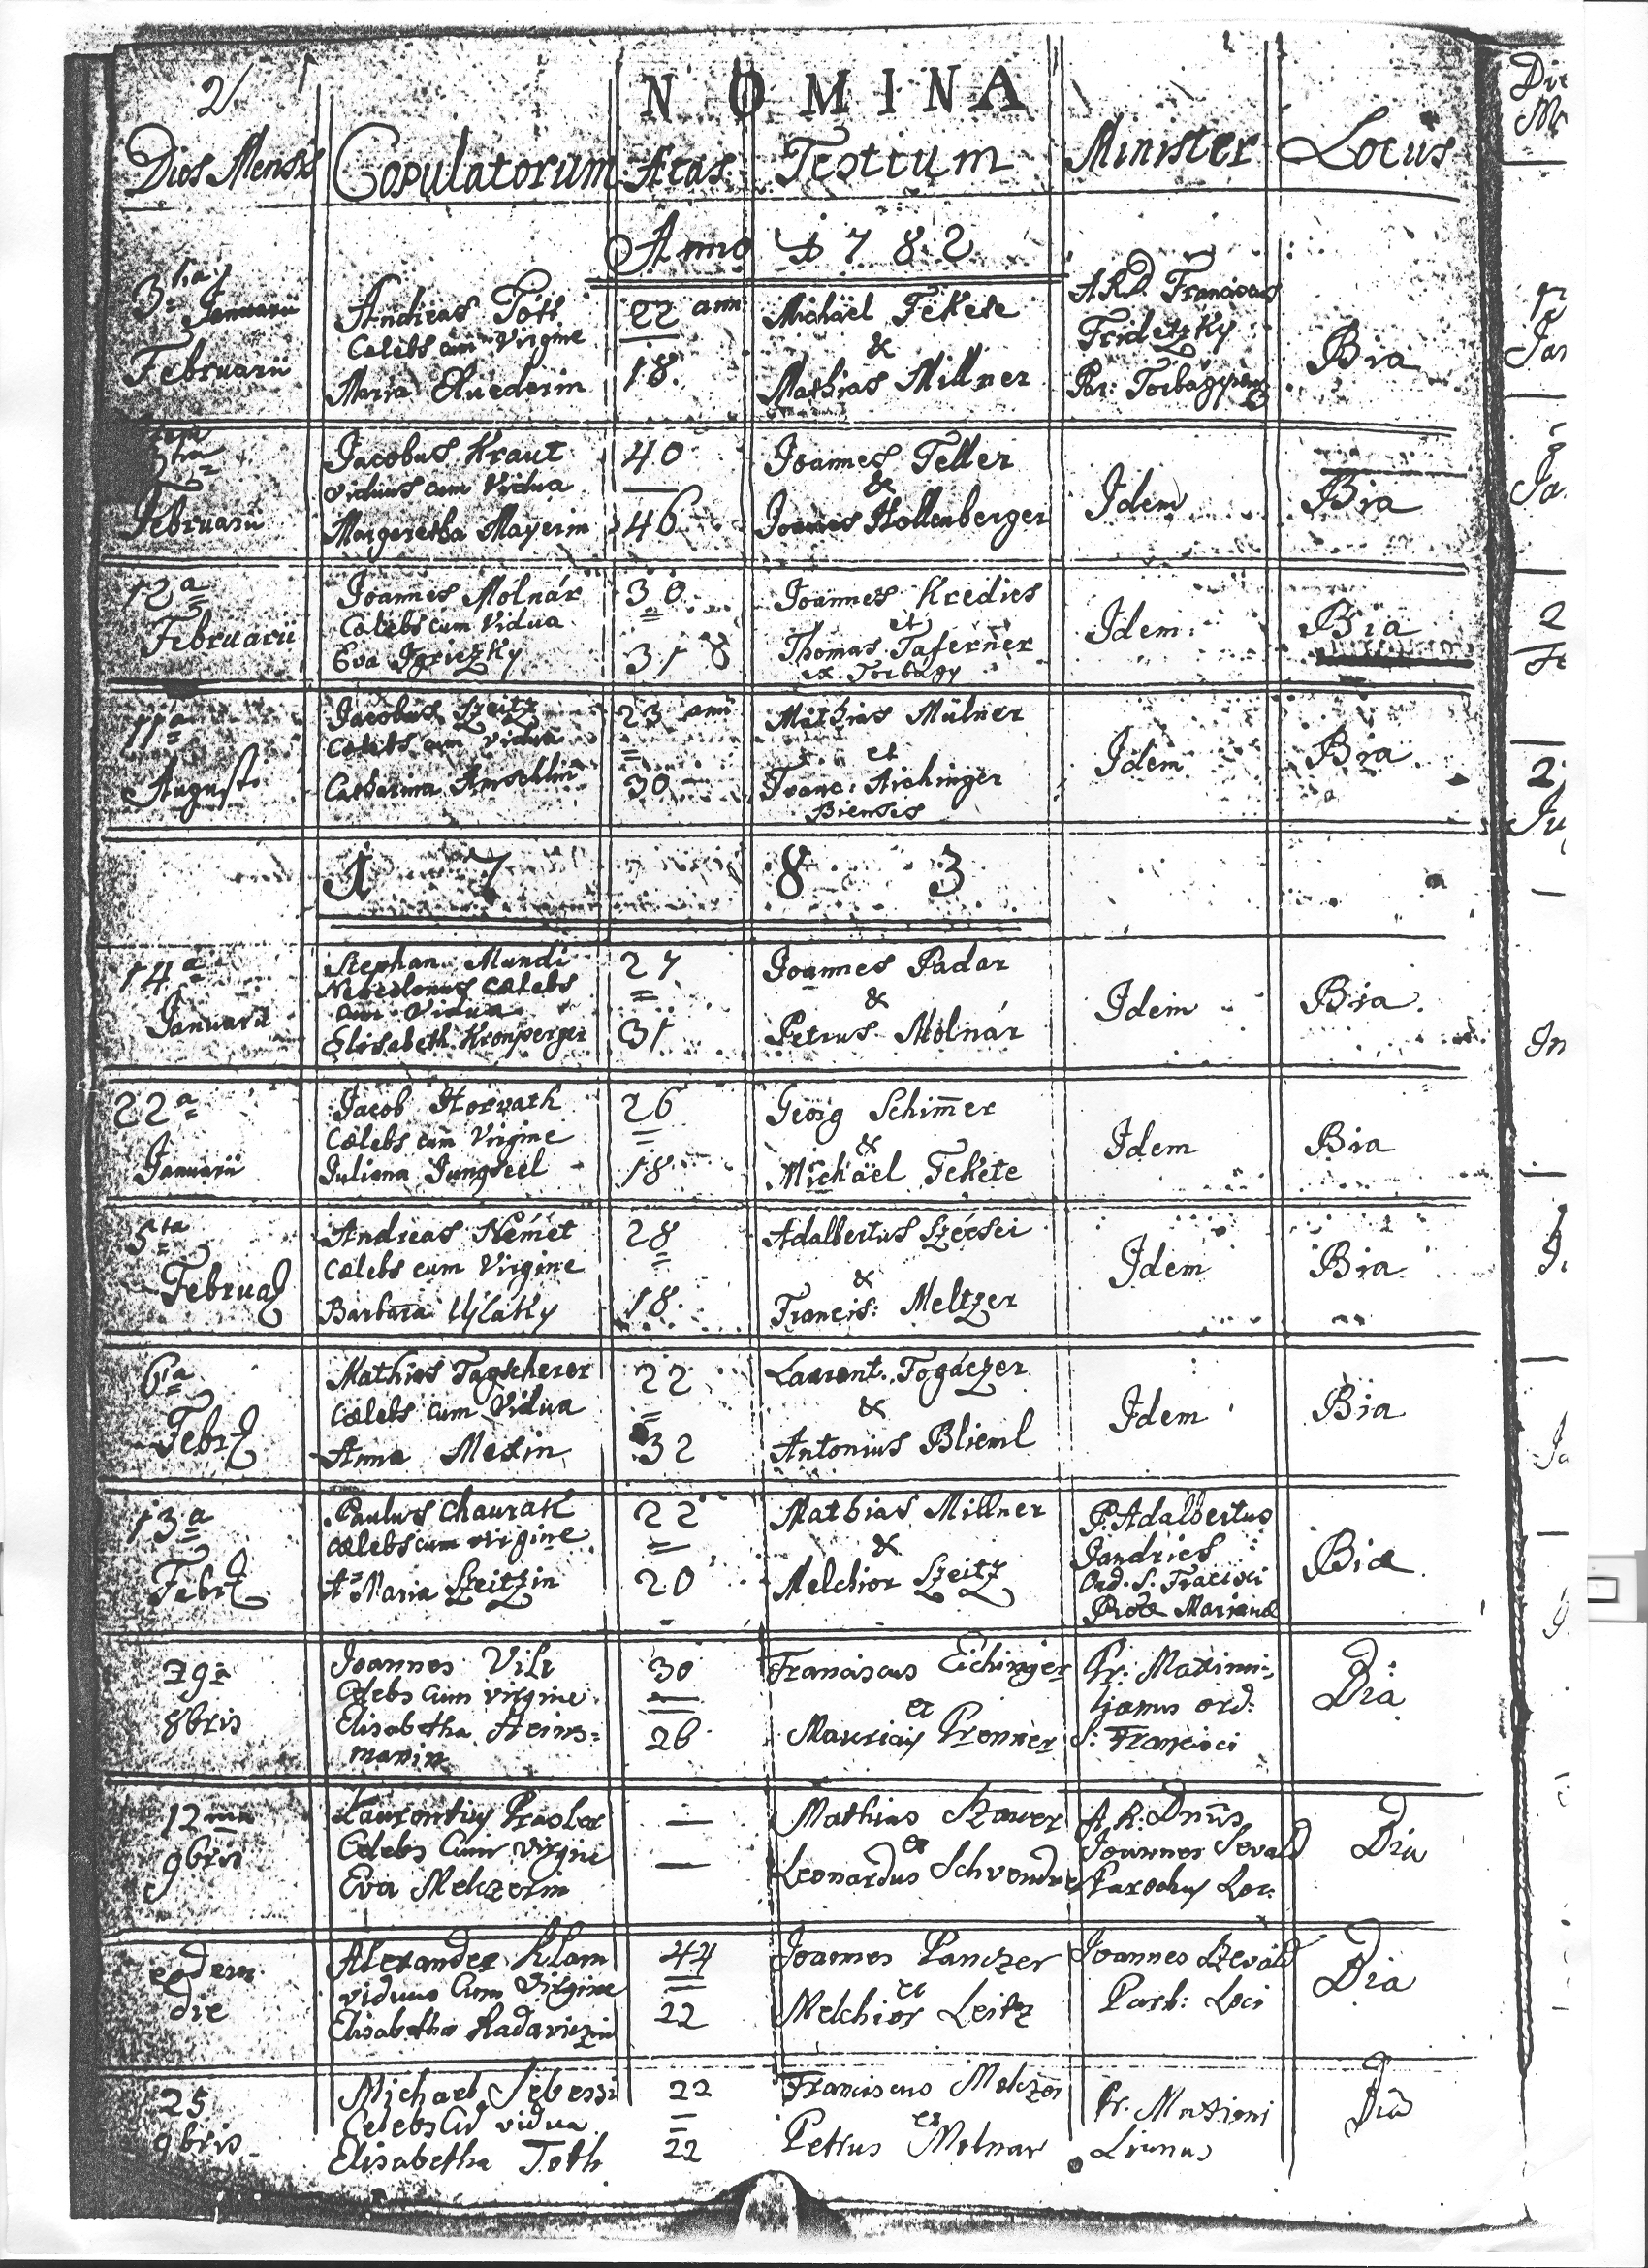 2
NOMINA
Dies Mensis Copulatorum Aetas Testium Minister Locus
Anno 1782
3tia Januarii
Februarii
Andreas Tóth
Caelebs cum Virgine
Maria
22 ann
18.
Michäel Fekete
&
Mathias Millner
A.R.D. Franciscus
Fridetzky
Par: Torbágyiensis
Bia
Februarii
Jacobus Kraut
viduus cum Vidua
Margeretha Mayerin
40
46
Joannes Teller
&
Joannes Hollenberger
Idem
Bia
12a
Februarii
Joannes Molnár
Caelebs cum Vidua
Eva
30
31
Joannes Kredics
et
Thomas Taferner
ex Torbágy
Idem
Bia
11a
Augusti
Jacobus Szeitz
Caelebs cum Vidua
Catharina
23 ann
30
Mathias Mülner
et
Franc: Aichinger
Biensis
Idem
Bia
1783
14a
Januarii
Stephan Mandi
Caelebs
cum Vidua
Elisabeth Kronperger
27
31
Joannes Padar
&
Petrus Molnár
Idem
Bia.
22a
Januarii
Jacob Horvath
Caelebs cum Virgine
Juliana Jungseel
26
18
Georg Schim̄er
&
Michäel Fekete
Idem
Bia
5ta
Februar
Andreas Német
Caelebs cum Virgine
Barbara Ujlaky
28
18.
Adalbertus Szécsei
&
Francis: Meltzer
Idem
Bia
6ta
Febr
Mathias Tagscherer
Caelebs cum Vidua
Anna Mexin
22
32
Laurent. Fogáczer
&
Antonius Blieml
Idem
Bia
13a
Febr
Paulus Chaurak
Caelebs cum virgine
A Maria Szeitzin
22
20
Mathias Millner
&
Melchior Szeitz
P. Adalbertus
Jandrics
Ord. S. Fracisci
Prōa Mariana
Bia
29a
8bris
Joannes Vili
Celebs cum virgine
Elisabetha Heins=
manin
30
26
Franciscus Eichinger
et
Mauriciy Pronner
Pr. Maximi-
lianus ord:
S: Francisci
Bia
12ma
9bris
Laurentiy Prasler
Celebs Cum Virgine
Eva Melczerin
—
—
Mathias Szauer
et
Leonardus Schvendner
A. R. Dnūs
Joannes Sevald
Parochuy Loc:
Bia
eadem
die
Alexander Klam
viduus Cum Virgine
Elisabetha Hadaviczin
44
22
Joannes Panczer
et
Melchior Leitz
Joannes Szevald
Parh: Loci
Bia
25
9bris
Michael Sebessi
Celebs Cū vidua
Elisabetha Toth
22
22
Franciscus Melczer
et
Petrus Molnar
Pr. Maximi
Lianus
Bia